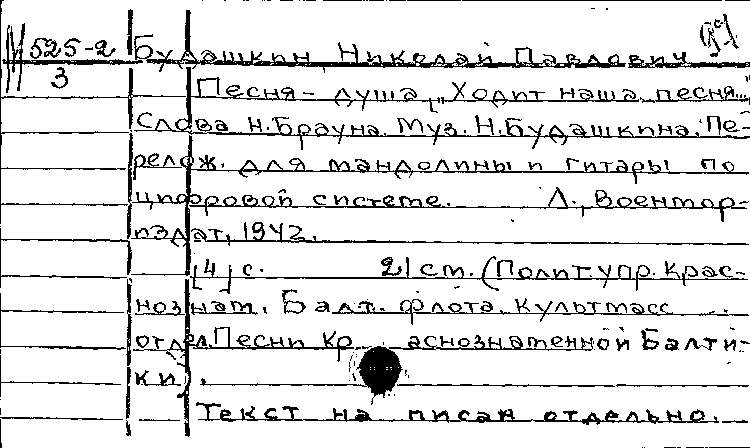 М 525-2 Будашкин, Николай Павлович.
3
Песня - душа. [„Ходит наша песня..."]
Слова Н. Брауна. Муз. Н. Будашкина. Пе-
релож. для мандолины и гитары по
цифровой системе. Л., Военмор-
издат, 1942.
[4] с. 21 см. (Полит. упр. Крас-
нознам. Балт. флота. Культмасс.
отдел. Песни Краснознаменной Балти-
ки).
Текст написан отдельно.